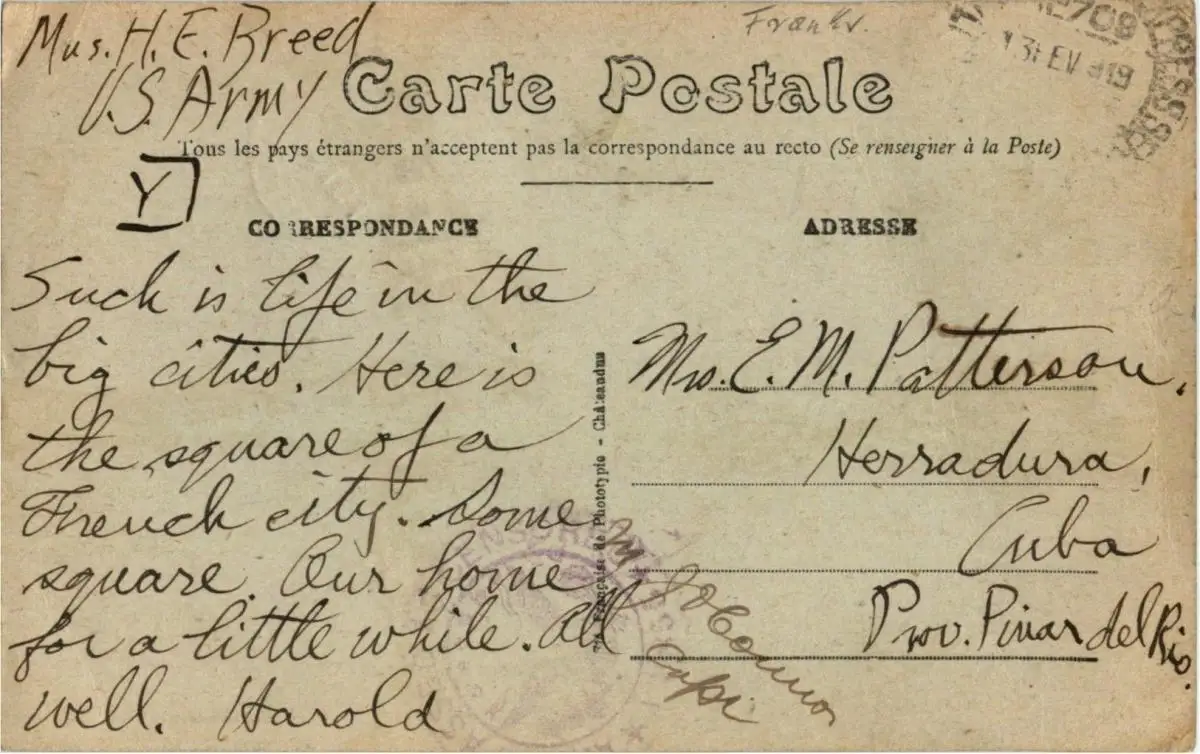 Mus. H. E. Breed
U.S. Army
Carte Postale
Tous les pays étrangers n'acceptent pas la correspondance au recto (Se renseigner à la Poste)
Y
CORRESPONDANCE
Such is life in the
big cities. Here is
the square of a
French city. Some
square. Our home
for a little while. All
well. Harold
Française de Phototypie - Châteaudun
ADRESSE
Mrs. E. M. Patterson,
Herradura,
Cuba
Prov. Pinar del Rio.